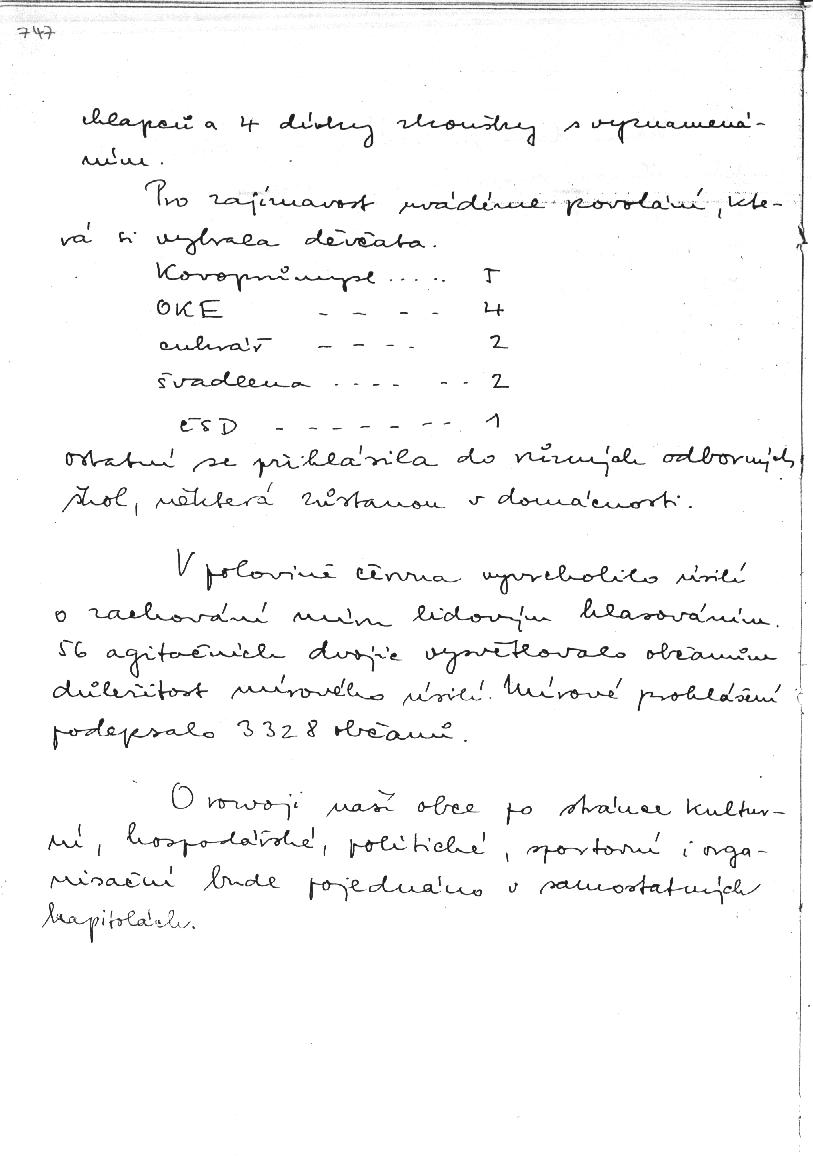 747
chlapců a 4 dívky zkoušky s vyznamená-
ním.
Pro zajímavost uvádíme povolání, kte-
rá si vybrala děvčata.
Kovoprůmysl ..... 5
OKE - - - - 4
cukrář - - - - 2
švadlena .... - - 2
ČSD - - - - - - - 1
ostatní se přihlásila do různých odborných
škol, některá zůstanou v domácnosti.
V polovině června vyvrcholilo úsilí
o zachování míru lidovým hlasováním.
56 agitačních dvojic vysvětlovalo občanům
důležitost mírového úsilí. Mírové prohlášení
podepsalo 3328 občanů.
O rozvoji naší obce po stránce kultur-
ní, hospodářské, politické, sportovní i orga-
nisační bude pojednáno v samostatných
kapitolách.